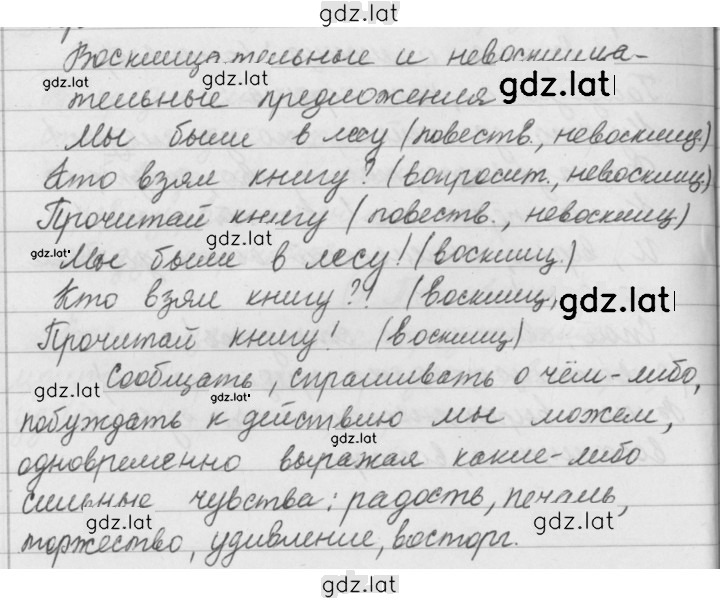 gdz.lat
Восклицательные и невосклица-
gdz.lat
gdz.lat
тельные предложения
Мы были в лесу (повеств., невосклиц.)
Кто взял книгу? (вопросит., невосклиц)
Прочитай книгу (повеств., невосклиц)
gdz.lat
gdz.lat
Мы были в лесу! (восклиц.)
Кто взял книгу?! (восклиц,
gdz.lat
Прочитай книгу! (восклиц)
Сообщать, спрашивать о чём-либо,
gdz.lat
gdz.lat
побуждать к действию мы можем,
gdz.lat
одновременно выражая какие-либо
сильные чувства: радость, печаль,
gdz.lat
gdz.lat
торжество, удивление, восторг.
gdz.lat